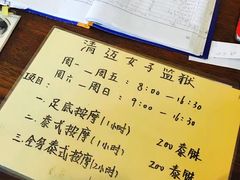 清迈女子监獄
周一一周五：8:00-16:30
周六一周日：9:00-16:30
项目：
一.足底按摩(1小时) 200泰銖
二.泰式按摩(1小时) 200泰銖
三.全身泰式按摩(2小时)